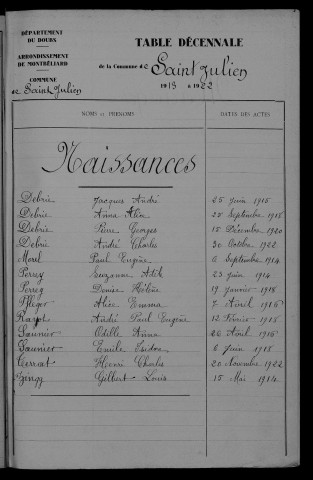 DÉPARTEMENT
DU DOUBS
ARRONDISSEMENT
DE MONTBÉLIARD
COMMUNE
de Saint Julien
TABLE DÉCENNALE
de la Commune de Saint Julien
1913 à 1922
NOMS ET PRÉNOMS
DATES DES ACTES
Naissances
Debrie Jacques André 25 Juin 1916
Debrie Anna Alice 25 Septembre 1918
Debrie Pierre Georges 15 Décembre 1920
Debrie André Charles 30 Octobre 1922
Morel Paul Eugène 6 Septembre 1914
Perrey Suzanne 23 Juin 1914
Perrey Denise Hélène 19 Janvier 1916
Pfléger Alice Emma 7 Avril 1916
André Paul Eugène 12 Février 1918
Saunier Odille Anna 26 Août 1915
Saunier Emile Isidore 6 Juin 1918
Henri Charles 20 Novembre 1922
Gilbert Louis 15 Mai 1914